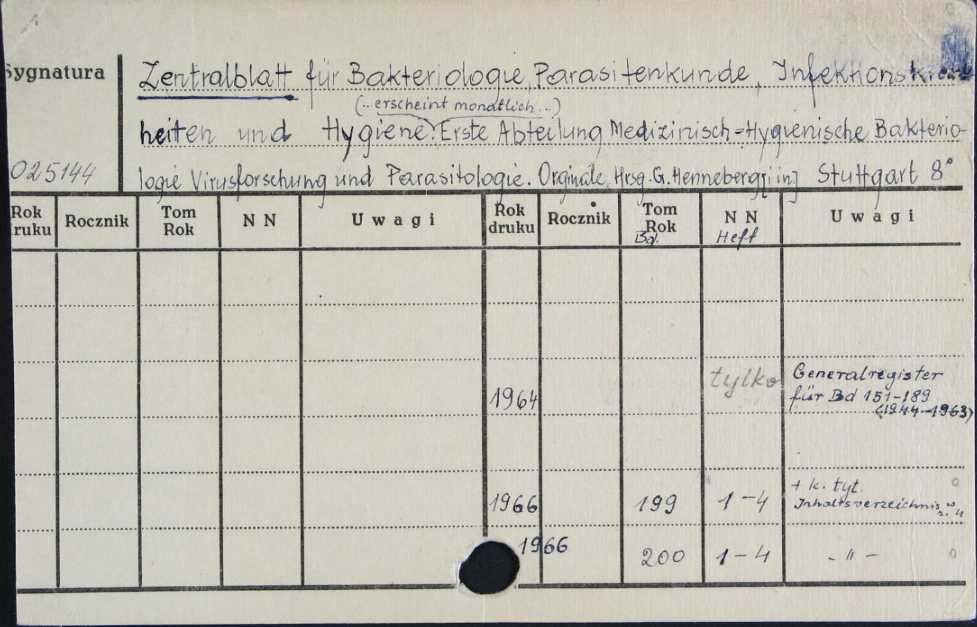 Sygnatura
Zentralblatt für Bakteriologie, Parasitenkunde, Infektionskrank
(...erscheint mondtlich...)
heiten und Hygiene. Erste Abteilung Medizinisch-Hygienische Bakterio-
025144
logie Virusforschung und Parasitologie. Orginale, Hrsg. G. Henneberg [i in] Stuttgart 8°
Rok druku Rocznik Tom Rok N N Uwagi Rok druku Rocznik Tom Rok N N Uwagi
Bd. Heft
1964 tylko Generalregister
für Bd 151-189
(1944-1963)
1966 199 1-4 + k. tyt.
Inhaltsverzeichnis
1966 200 1-4 -"-